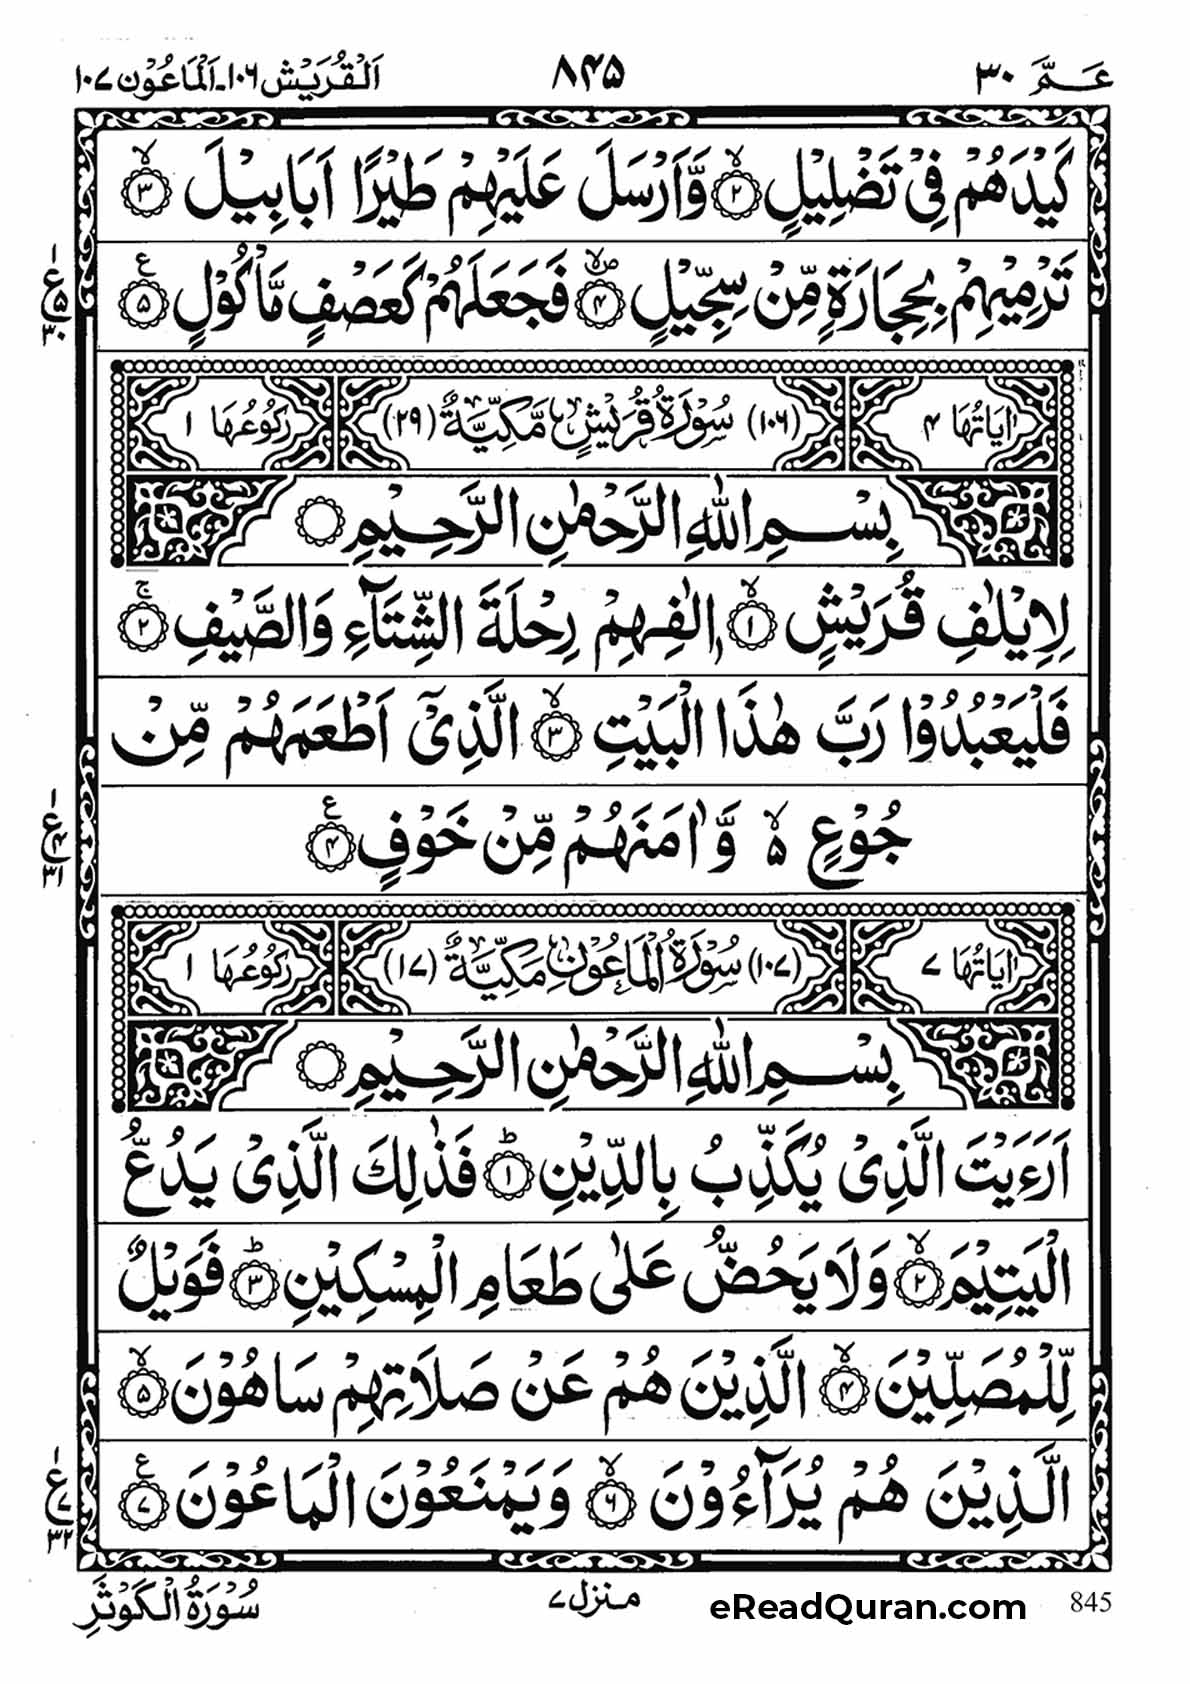 عـمّ ٣٠
٨٤٥
اَلْقُرَيْش ١٠٦-اَلْمَاعُوْن ١٠٧
كَيْدَهُمْ فِيْ تَضْلِيْلٍ ۙ‏﴿٢﴾ وَّاَرْسَلَ عَلَيْهِمْ طَيْرًا اَبَابِيْلَ ۙ‏﴿٣﴾
تَرْمِيْهِمْ بِحِجَارَةٍ مِّنْ سِجِّيْلٍ ۪ۙ‏﴿٤﴾ فَجَعَلَهُمْ كَعَصْفٍ مَّاْكُوْلٍ ﴿٥﴾ ع
١ ع ٥ ٣٠
اٰيَاتُهَا ٤ (١٠٦) سُوْرَةُ قُرَيْشٍ مَّكِّيَّةٌ (٢٩) رُكُوْعُهَا ١
بِسْمِ اللّٰهِ الرَّحْمٰنِ الرَّحِيْمِ
لِاِيْلٰفِ قُرَيْشٍ ۙ‏﴿١﴾ اٖلٰفِهِمْ رِحْلَةَ الشِّتَآءِ وَالصَّيْفِ ۚ‏﴿٢﴾
فَلْيَعْبُدُوْا رَبَّ هٰذَا الْبَيْتِ ۙ‏﴿٣﴾ الَّذِيْٓ اَطْعَمَهُمْ مِّنْ
جُوْعٍ ۙ۬ وَّاٰمَنَهُمْ مِّنْ خَوْفٍ ﴿٤﴾ ع
١ ع ٤ ٣١
اٰيَاتُهَا ٧ (١٠٧) سُوْرَةُ الْمَاعُوْنِ مَكِّيَّةٌ (١٧) رُكُوْعُهَا ١
بِسْمِ اللّٰهِ الرَّحْمٰنِ الرَّحِيْمِ
اَرَءَيْتَ الَّذِيْ يُكَذِّبُ بِالدِّيْنِ ؕ‏﴿١﴾ فَذٰلِكَ الَّذِيْ يَدُعُّ
الْيَتِيْمَ ۙ‏﴿٢﴾ وَلَا يَحُضُّ عَلٰى طَعَامِ الْمِسْكِيْنِ ؕ‏﴿٣﴾ فَوَيْلٌ
لِّلْمُصَلِّيْنَ ۙ‏﴿٤﴾ الَّذِيْنَ هُمْ عَنْ صَلَاتِهِمْ سَاهُوْنَ ۙ‏﴿٥﴾
الَّذِيْنَ هُمْ يُرَآءُوْنَ ۙ‏﴿٦﴾ وَيَمْنَعُوْنَ الْمَاعُوْنَ ﴿٧﴾ ع
١ ع ٧ ٣٢
845
eReadQuran.com
منزل ٧
سُوْرَةُ الْكَوْثَرِ